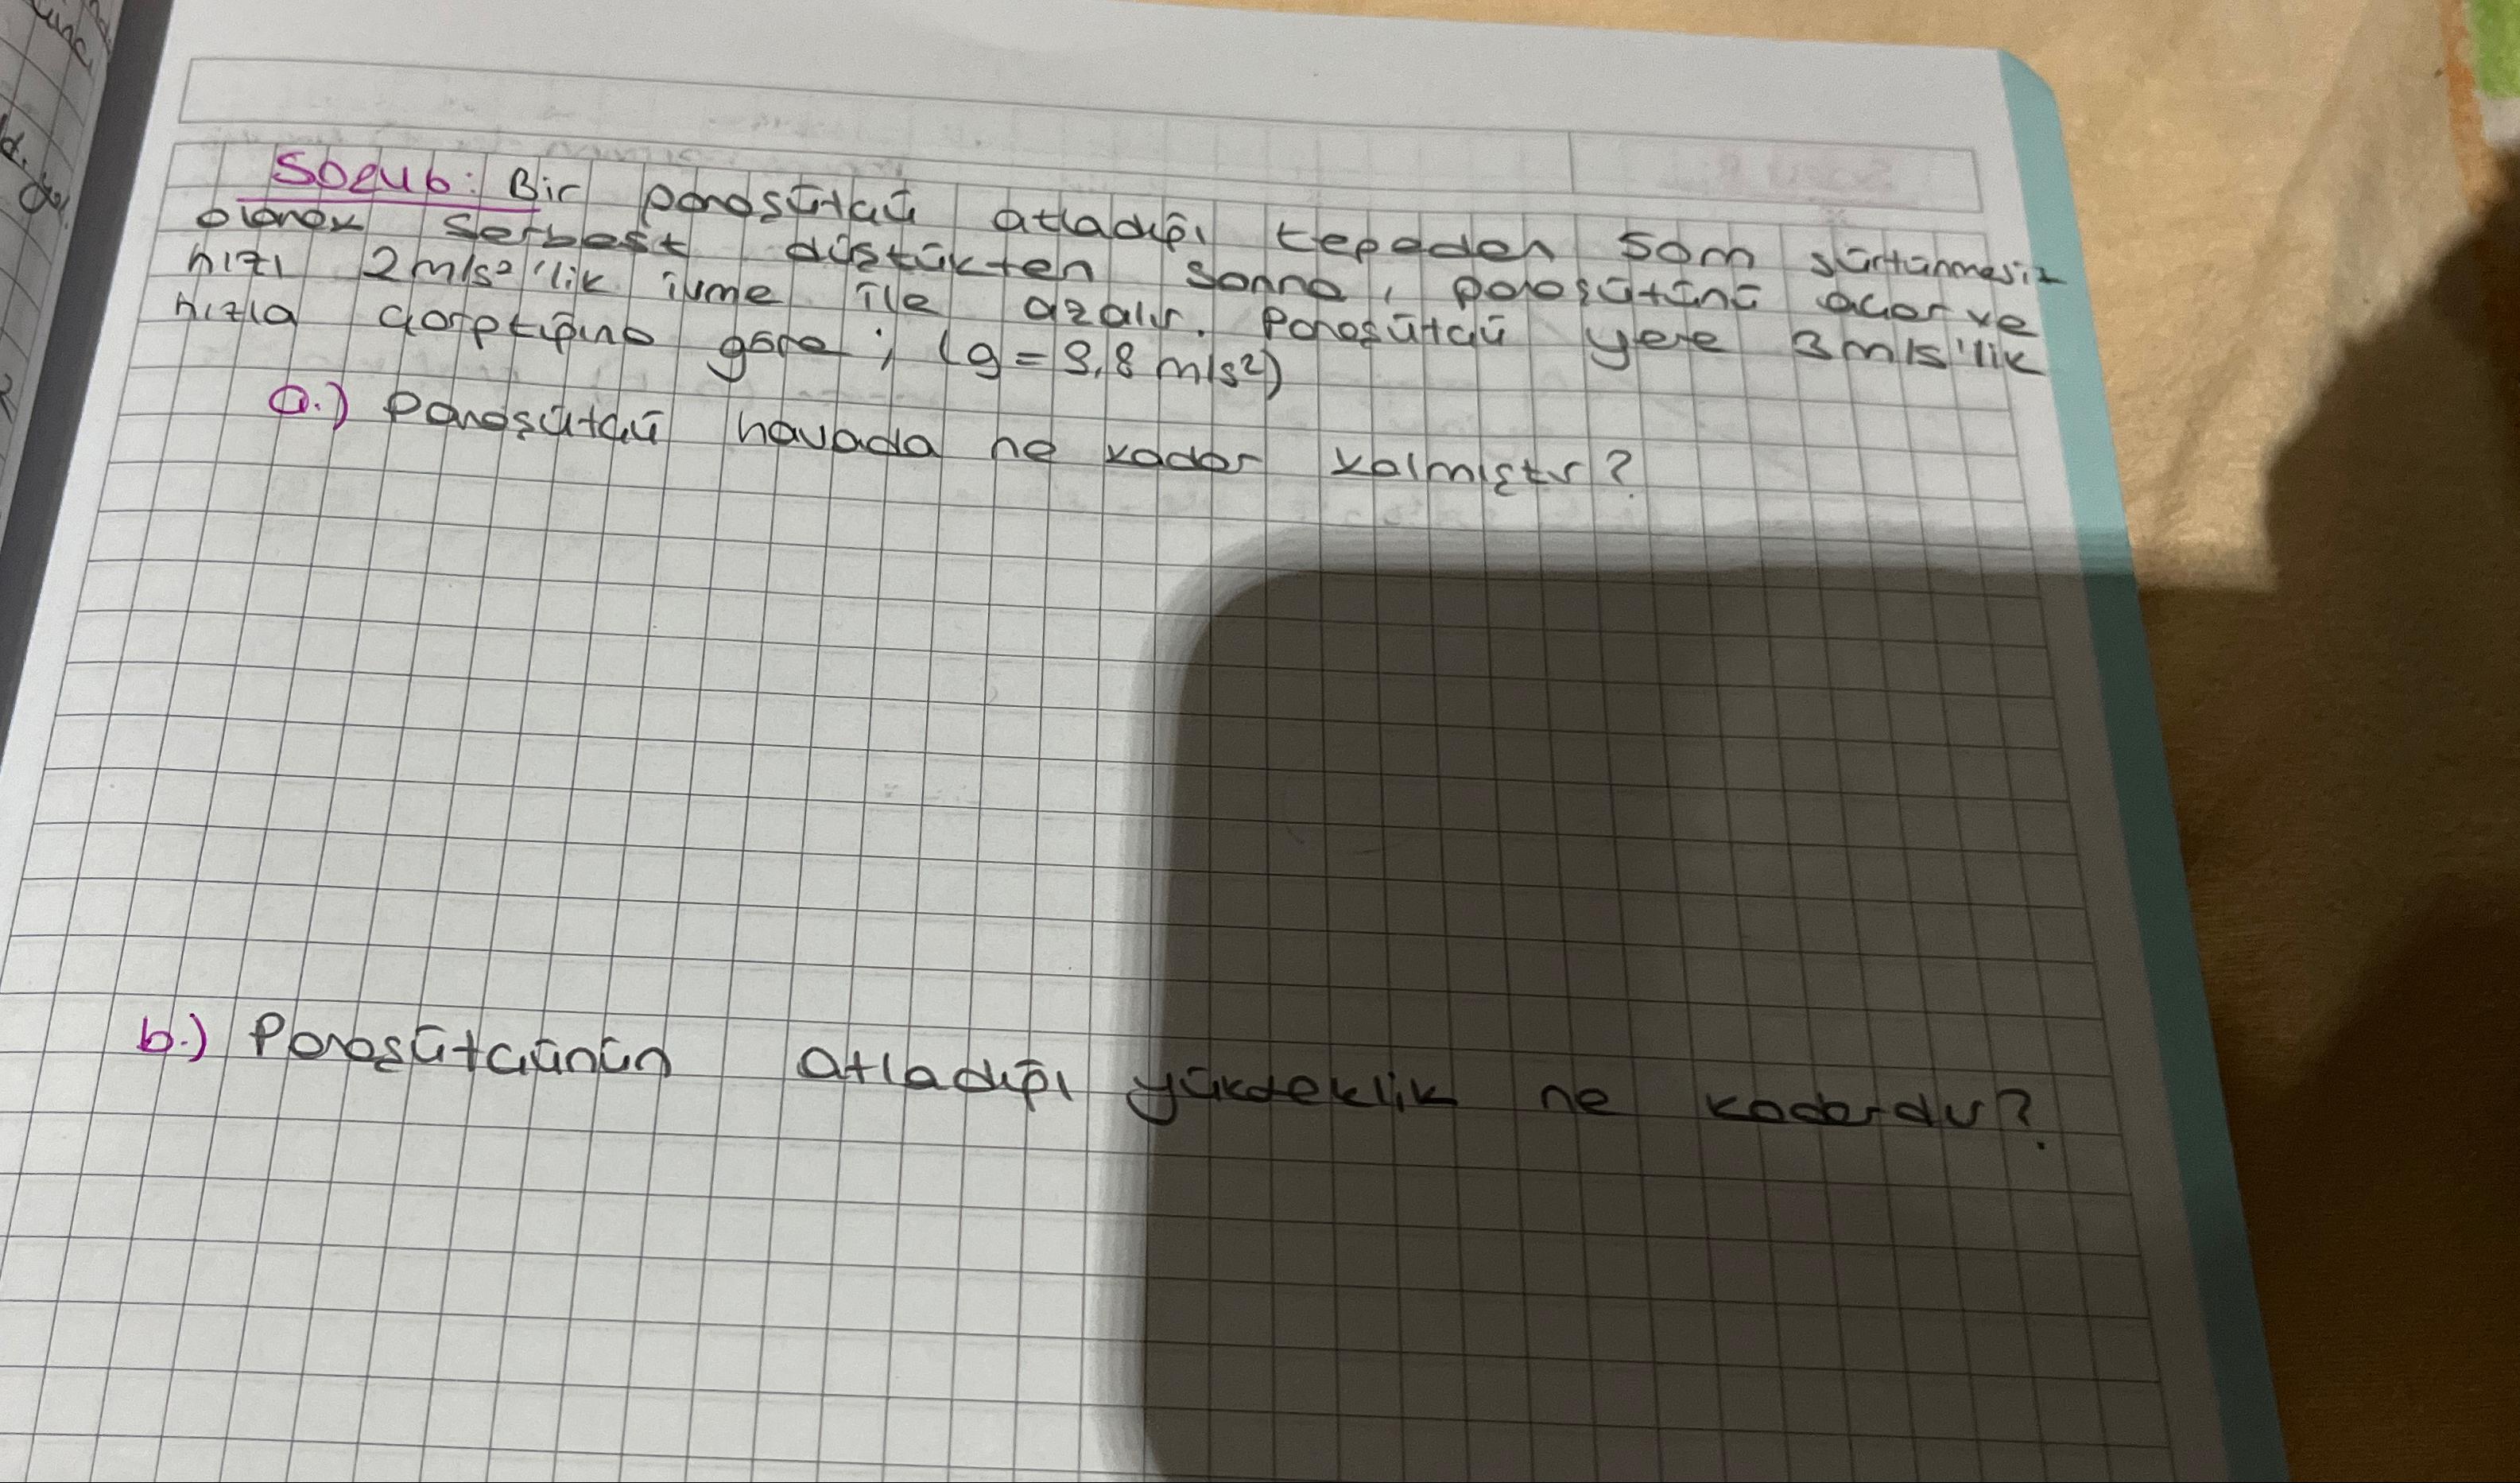 Soru 6: Bir paraşütçü atladığı tepeden 50m sürtünmesiz
olarak serbest düştükten sonra, paraşütünü açar ve
hızı 2m/s² 'lik ivme ile azalır. Paraşütçü yere 3m/s'lik
hızla çarptığına göre; (g = 9,8 m/s²)
a.) Paraşütçü havada ne kadar kalmıştır?
b.) Paraşütçünün atladığı yükseklik ne kadardır?